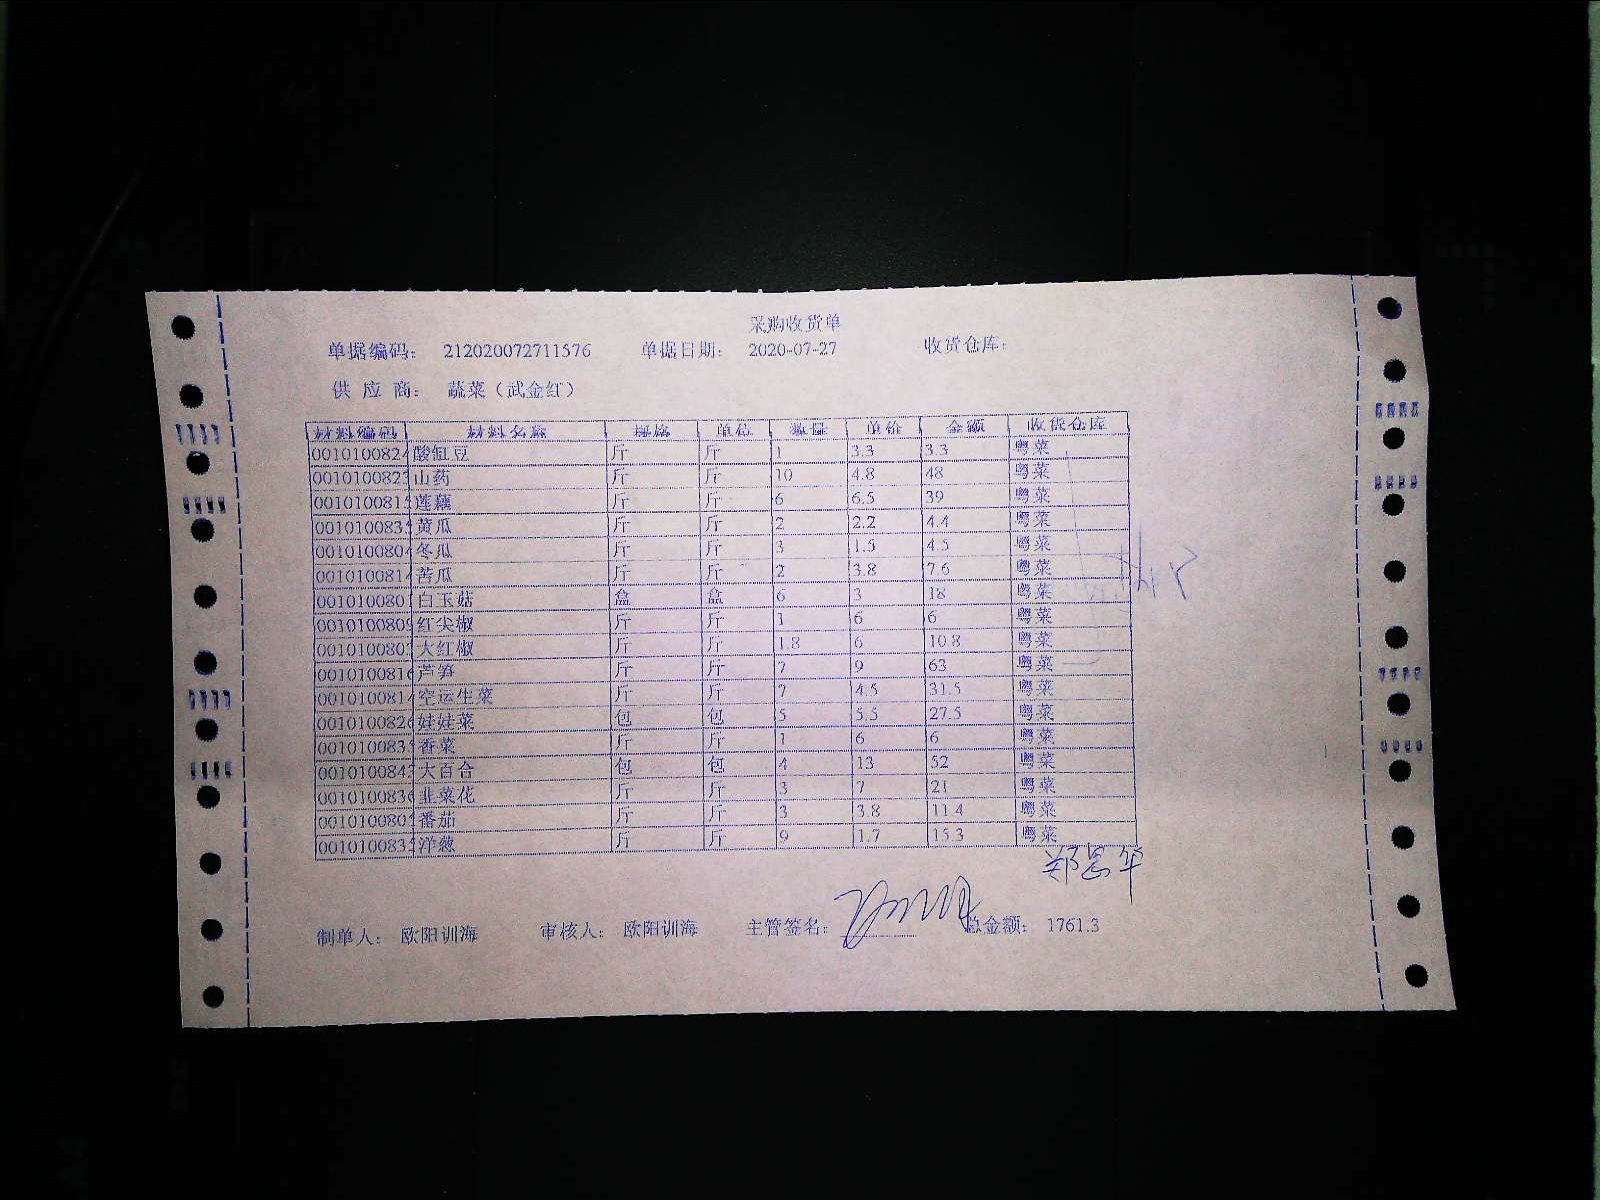 采购收货单
单据编码： 212020072711576 单据日期： 2020-07-27 收货仓库：
供 应 商： 蔬菜（武金红）
材料编码 材料名称 规格 单位 数量 单价 金额 收货仓库
0010100824 酸缸豆 斤 斤 1 3.3 3.3 粤菜
001010082 山药 斤 斤 10 4.8 48 粤菜
001010081 莲藕 斤 斤 6 6.5 39 粤菜
001010083 黄瓜 斤 斤 2 2.2 4.4 粤菜
0010100804 冬瓜 斤 斤 3 1.5 4.5 粤菜
0010100814 苦瓜 斤 斤 2 3.8 7.6 粤菜
001010080 白玉菇 盒 盒 6 3 18 粤菜
0010100809 红尖椒 斤 斤 1 6 6 粤菜
001010080 大红椒 斤 斤 1.8 6 10.8 粤菜
0010100816 芦笋 斤 斤 7 9 63 粤菜
0010100814 空运生菜 斤 斤 7 4.5 31.5 粤菜
0010100826 娃娃菜 包 包 5 5.5 27.5 粤菜
001010083 香菜 斤 斤 1 6 6 粤菜
001010084 大百合 包 包 4 13 52 粤菜
0010100836 韭菜花 斤 斤 3 7 21 粤菜
001010080 番茄 斤 斤 3 3.8 11.4 粤菜
001010083 洋葱 斤 斤 9 1.7 15.3 粤菜
制单人： 欧阳训海 审核人： 欧阳训海 主管签名： 总金额： 1761.3